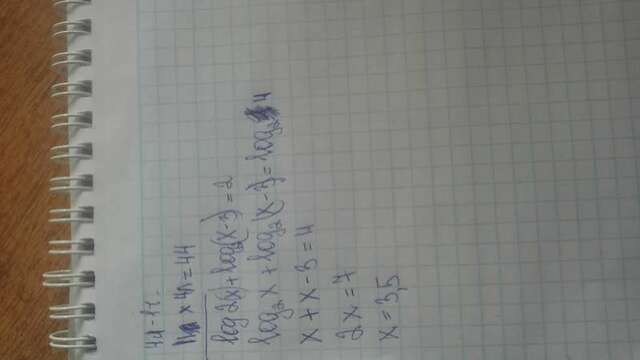 × 4n = 44
log₂(x) + log₂(x-3) = 2
log₂ x + log₂(x-3) = log₂ 4
x + x - 3 = 4
2x = 7
x = 3,5